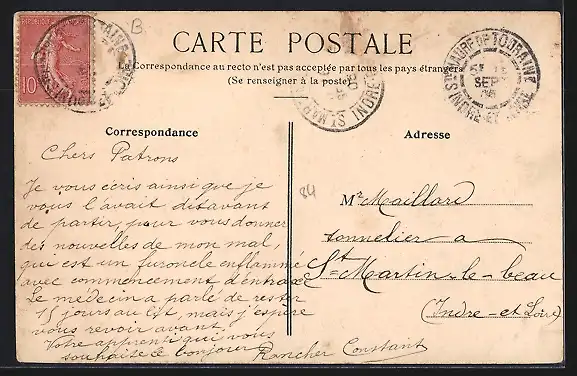 CARTE POSTALE
La Correspondance au recto n'est pas acceptée par tous les pays étrangers
(Se renseigner à la poste)
Correspondance
Adresse
Chers Patrons
Je vous écris ainsi que je
vous l'avait dit avant
de partir, pour vous donner
des nouvelles de mon mal,
qui est un furoncle enflammé
avec commencement d'entrax
Le médecin a parlé de rester
15 jours au lit, mais j'espère
vous revoir avant.
Votre apprenti qui vous
souhaite le bonjour
Rancher Constant
84
Mr Maillard
tonnelier a
St-Martin-le-beau
(Indre-et-Loire)
B
10
STE MAURE DE TOURAINE
SEPT
INDRE-ET-LOIRE